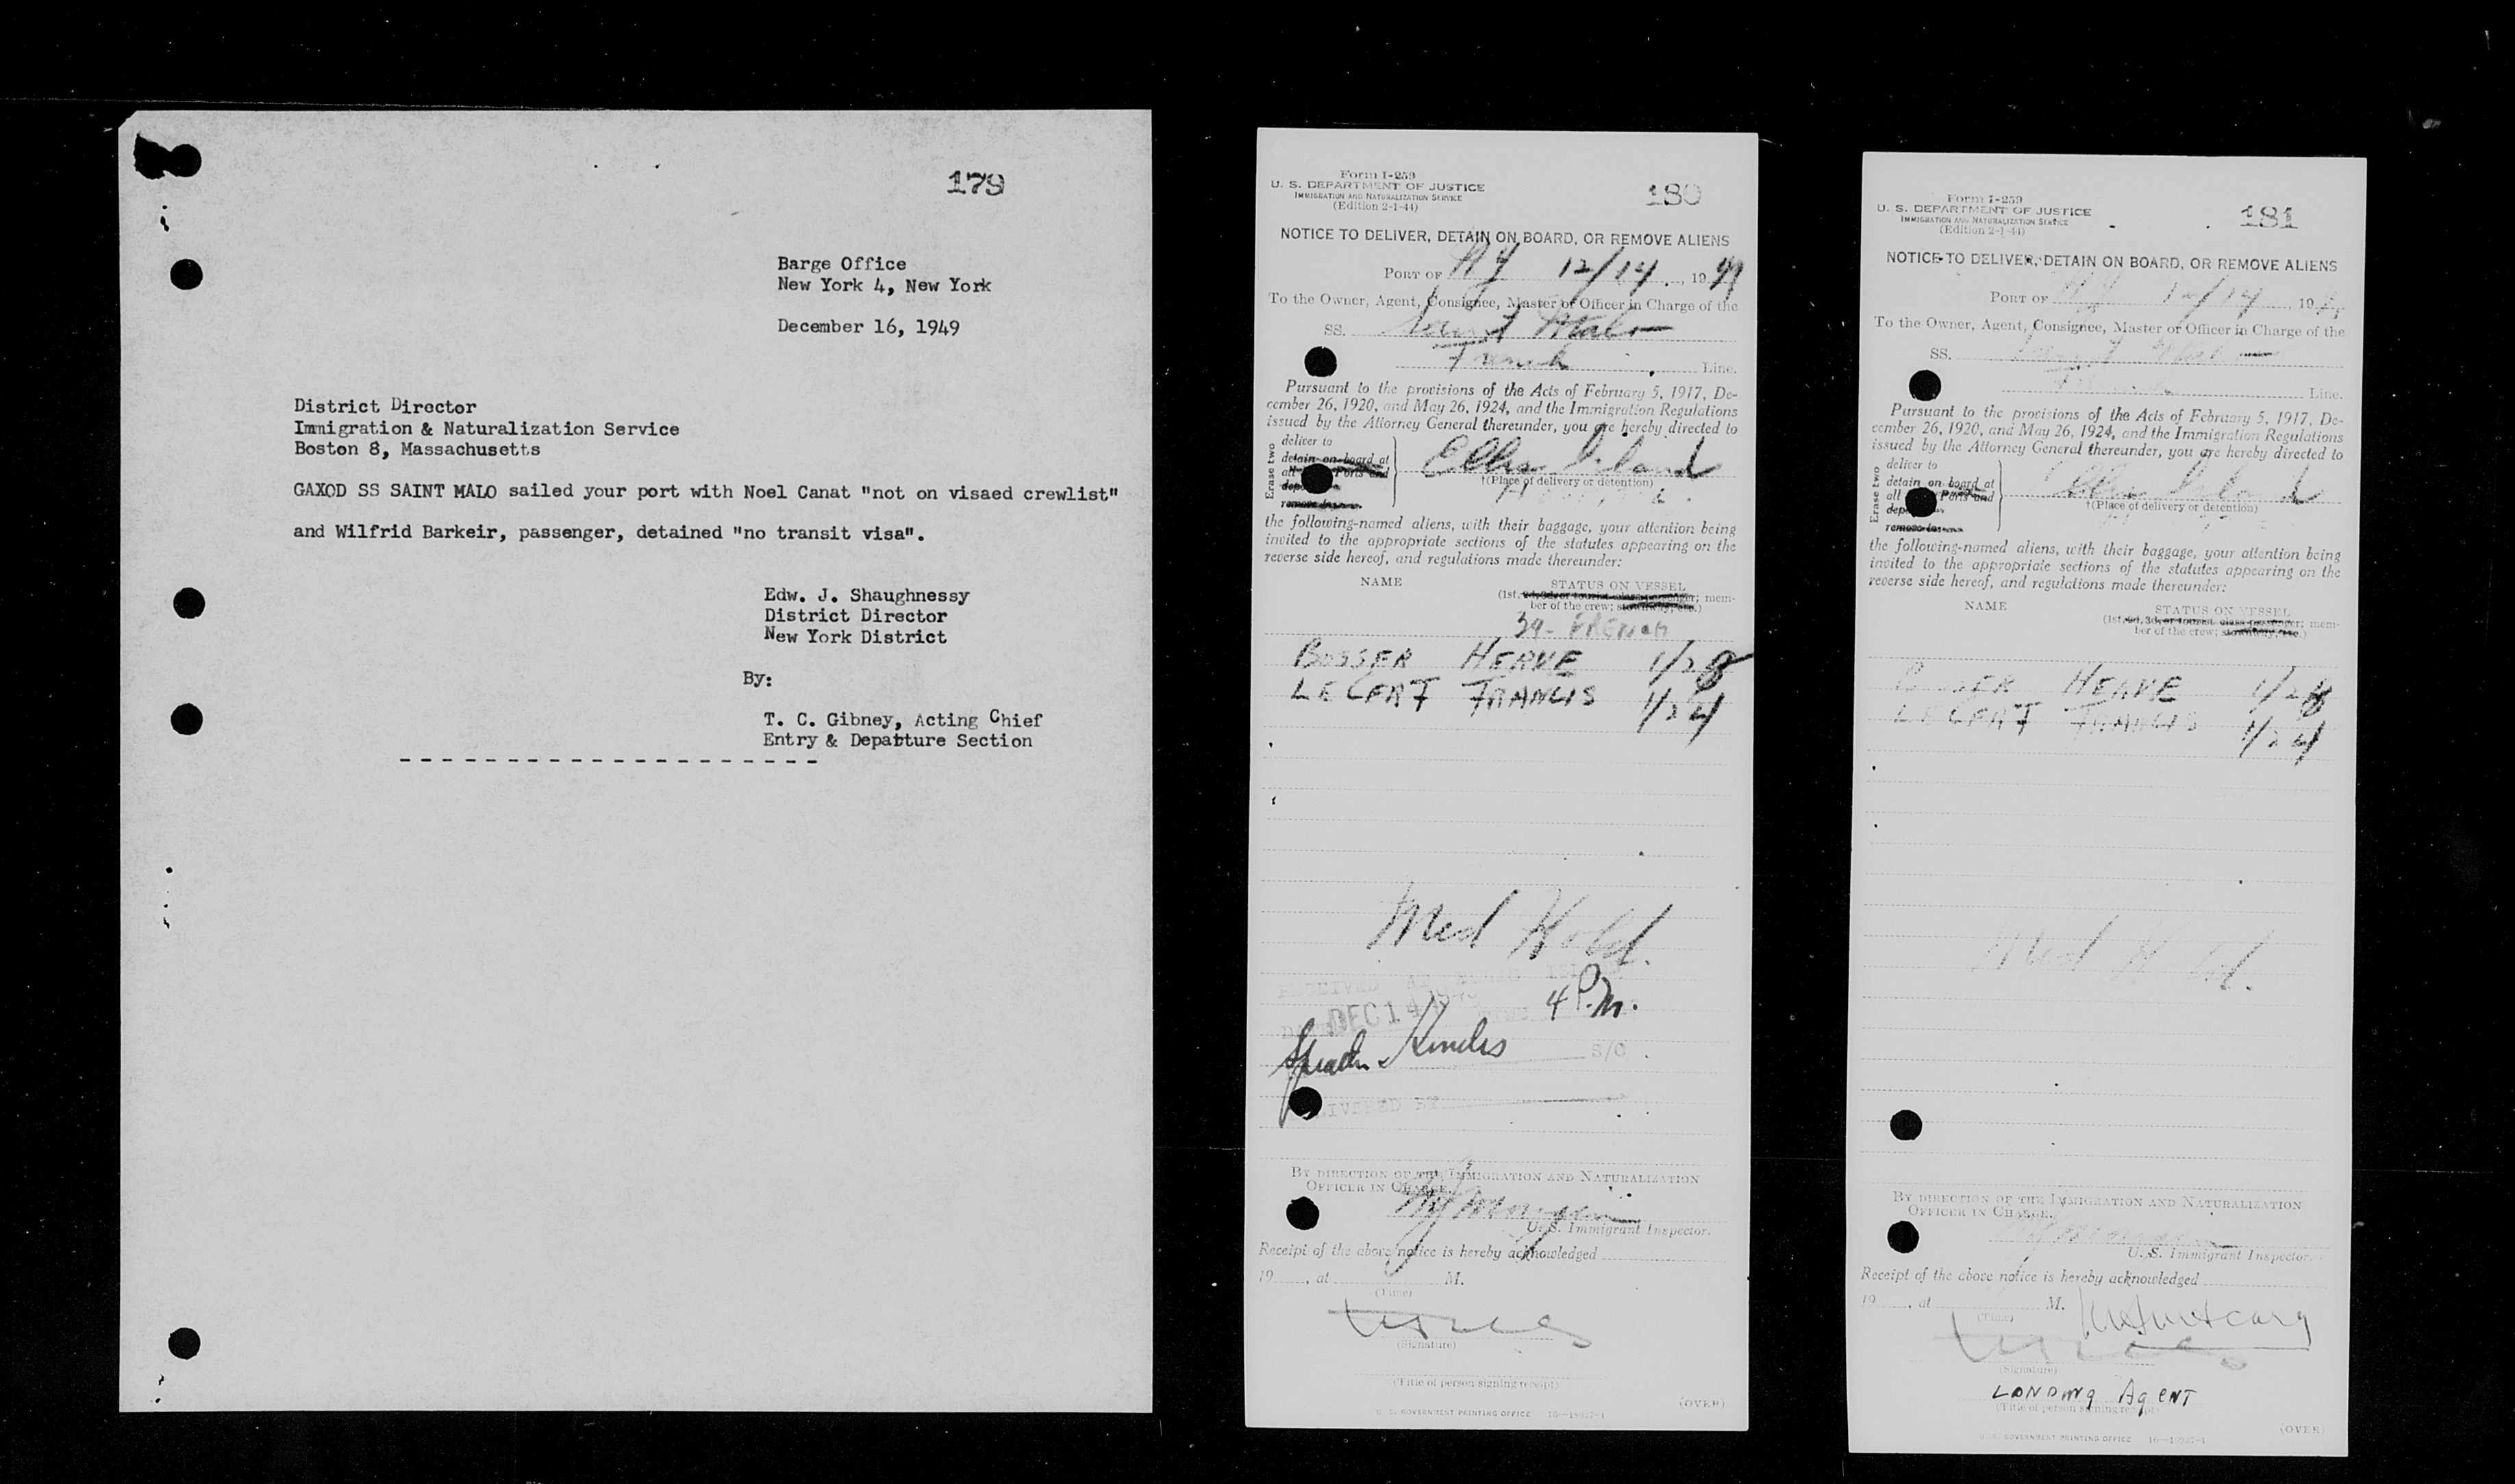 179
Barge Office
New York 4, New York
December 16, 1949
District Director
Immigration & Naturalization Service
Boston 8, Massachusetts
GAXOD SS SAINT MALO sailed your port with Noel Canat "not on visaed crewlist"
and Wilfrid Barkeir, passenger, detained "no transit visa".
Edw. J. Shaughnessy
District Director
New York District
By:
T. C. Gibney, Acting Chief
Entry & Depatture Section
Form I-259
U. S. DEPARTMENT OF JUSTICE
IMMIGRATION AND NATURALIZATION SERVICE
(Edition 2-1-44)
180
NOTICE TO DELIVER, DETAIN ON BOARD, OR REMOVE ALIENS
PORT OF NY 12/14, 1949
To the Owner, Agent, Consignee, Master or Officer in Charge of the
SS. Saint Malo
French Line.
Pursuant to the provisions of the Acts of February 5, 1917, De-
cember 26, 1920, and May 26, 1924, and the Immigration Regulations
issued by the Attorney General thereunder, you are hereby directed to
Erase two
deliver to
detain on board at
all Ports and
remove to
Ellis Island
†(Place of delivery or detention)
the following-named aliens, with their baggage, your attention being
invited to the appropriate sections of the statutes appearing on the
reverse side hereof, and regulations made thereunder:
NAME STATUS ON VESSEL
(1st, 2d, 3d, or tourist class passenger; mem-
ber of the crew; stowaway, etc.)
FRENCH
BOSSER HERVE 1/28
LE CERF FRANCIS 1/24
Med Hold.
RECEIVED AT ELLIS ISLAND
DEC 14 4 P.M.
S/O
BY DIRECTION OF THE IMMIGRATION AND NATURALIZATION
OFFICER IN CHARGE.
U. S. Immigrant Inspector.
Receipt of the above notice is hereby acknowledged
19 , at M.
(Time)
(Signature)
(Title of person signing receipt)
(OVER)
U. S. GOVERNMENT PRINTING OFFICE
Form I-259
U. S. DEPARTMENT OF JUSTICE
IMMIGRATION AND NATURALIZATION SERVICE
(Edition 2-1-44)
181
NOTICE TO DELIVER, DETAIN ON BOARD, OR REMOVE ALIENS
PORT OF NY 12/14, 19
To the Owner, Agent, Consignee, Master or Officer in Charge of the
SS. Saint Malo
French Line.
Pursuant to the provisions of the Acts of February 5, 1917, De-
cember 26, 1920, and May 26, 1924, and the Immigration Regulations
issued by the Attorney General thereunder, you are hereby directed to
Erase two
deliver to
detain on board at
all Ports and
remove to
Ellis Island
†(Place of delivery or detention)
the following-named aliens, with their baggage, your attention being
invited to the appropriate sections of the statutes appearing on the
reverse side hereof, and regulations made thereunder:
NAME STATUS ON VESSEL
(1st, 2d, 3d, or tourist class passenger; mem-
ber of the crew; stowaway, etc.)
BOSSER HERVE 1/28
LE CERF FRANCIS 1/24
Med Hold.
BY DIRECTION OF THE IMMIGRATION AND NATURALIZATION
OFFICER IN CHARGE.
U. S. Immigrant Inspector.
Receipt of the above notice is hereby acknowledged
19 , at M.
(Time)
(Signature)
LANDING AgENT
(Title of person signing receipt)
(OVER)
U. S. GOVERNMENT PRINTING OFFICE